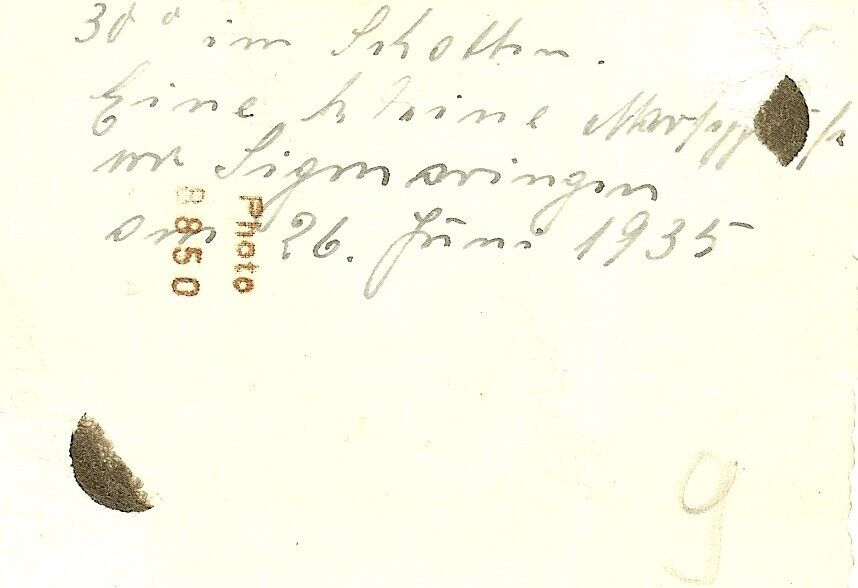 30° im Schatten.
Eine kleine
vor Sigmaringen
am 26. Juni 1935
Photo
8850
9